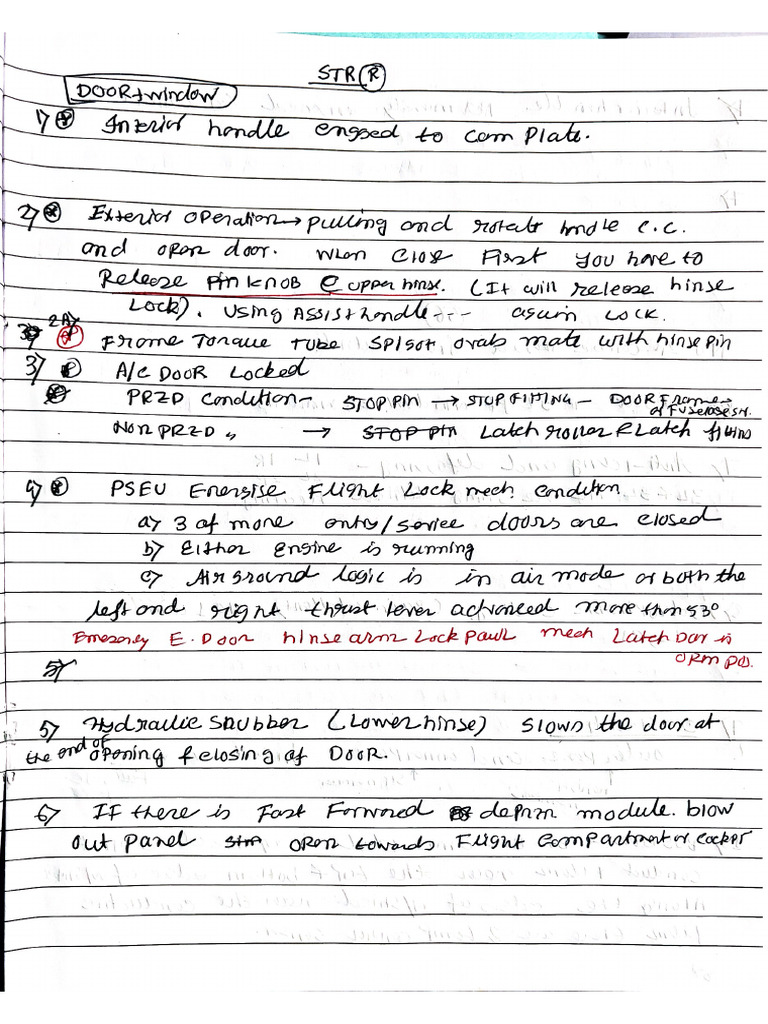 STR (R)
DOOR & window
1) Interior handle engged to cam plate.
2) Exterior operation → pulling and rotate hndle c.c.
and open door. When close First you have to
Release Pin KNOB @ upper hinse. (It will release hinse
Lock). Using Assist handle --- again Lock.
2A) Frome Torque Tube Spigot mate with hinse pin
3) A/C DOOR Locked
PRZD Condition - STOP PIN → STOP FITTING - DOOR Frame
or Fuselage
Non PRZD " → STOP PIN Latch roller & Latch
4) PSEU Energise Flight Lock mech. condition
a) 3 of more entry/service doors are closed
b) Either engine is running
c) Air ground logic is in air mode or both the
left and right thrust lever advanced more than 53°
Emergency E. Door hinse arm Lock Pawl mech Latch
5)
5) Hydraulic Snubber (Lower hinse) slows the door at
the end of opening & closing of DOOR.
6) IF there is Fast Forward module. blow
out panel open towards Flight Compartment or Cockpit